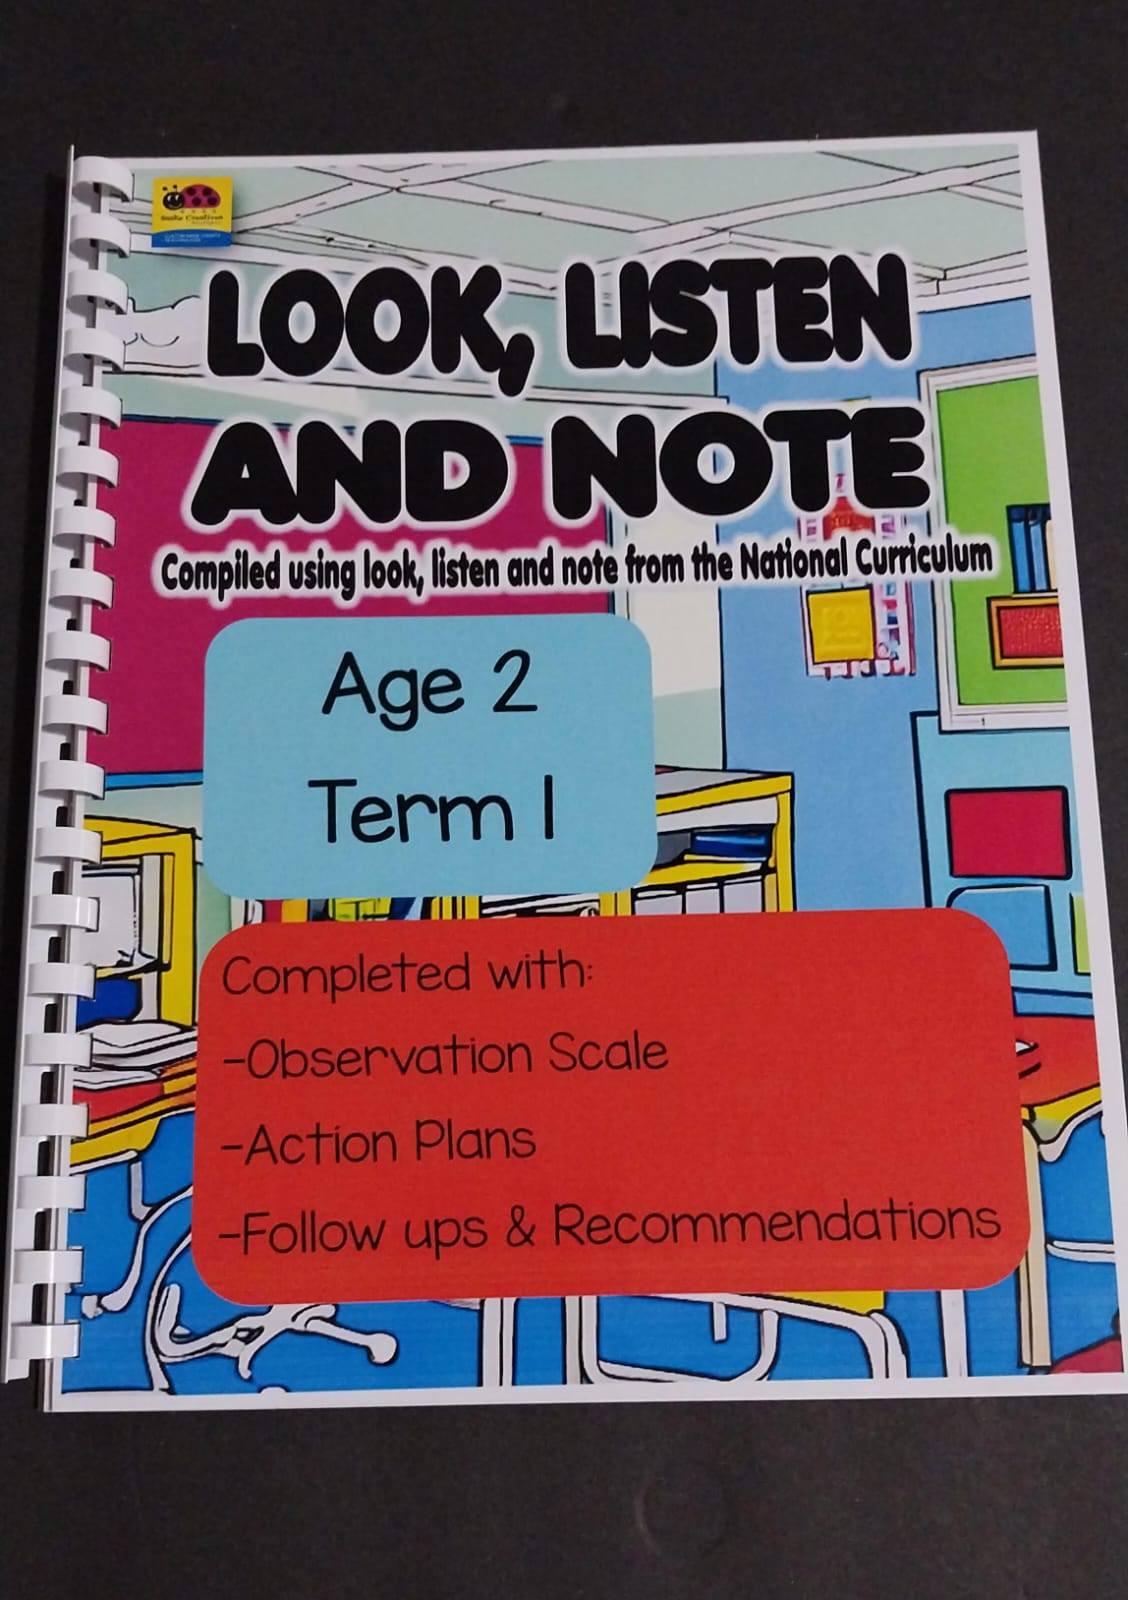 LOOK, LISTEN
AND NOTE
Compiled using look, listen and note from the National Curriculum
Age 2
Term 1
Completed with:
-Observation Scale
-Action Plans
-Follow ups & Recommendations